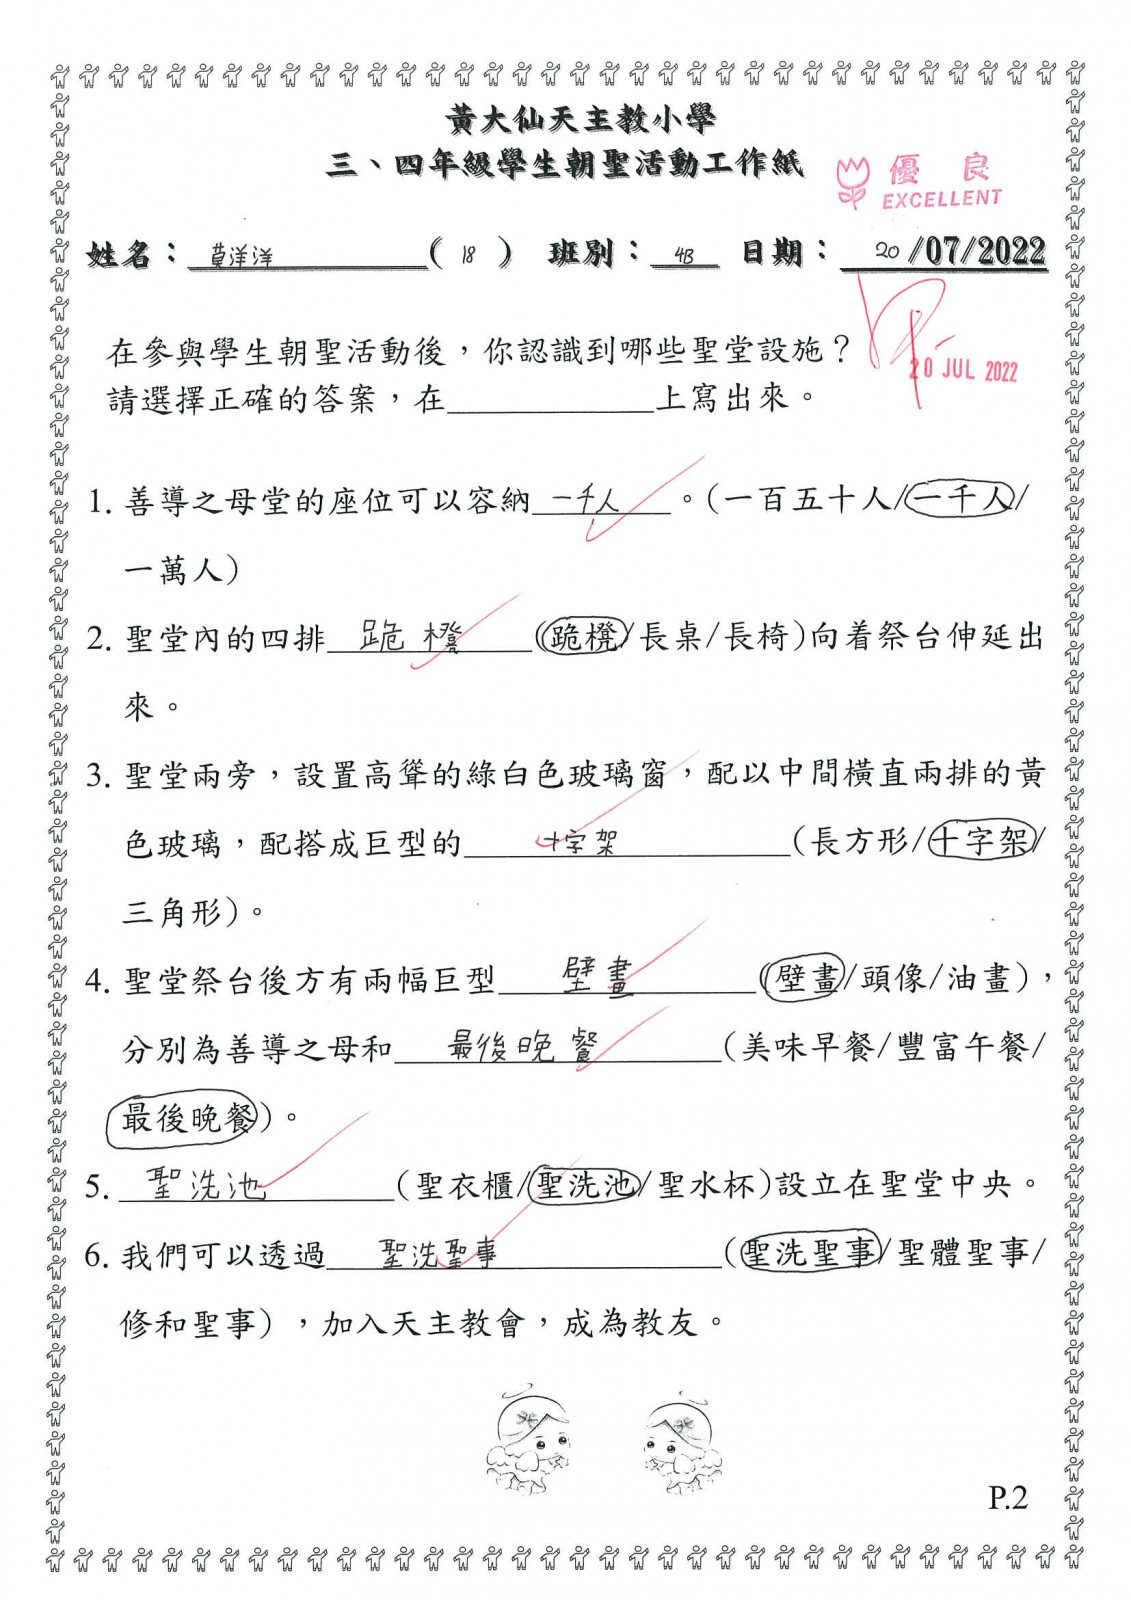 黃大仙天主教小學
三、四年級學生朝聖活動工作紙
優 良
EXCELLENT
姓名：黃洋洋(18) 班別：4B 日期：20/07/2022
在參與學生朝聖活動後，你認識到哪些聖堂設施？
20 JUL 2022
請選擇正確的答案，在____________上寫出來。
1. 善導之母堂的座位可以容納 一千人 。(一百五十人/一千人/
一萬人)
2. 聖堂內的四排 跪櫈 (跪櫈/長桌/長椅)向着祭台伸延出
來。
3. 聖堂兩旁，設置高聳的綠白色玻璃窗，配以中間橫直兩排的黃
色玻璃，配搭成巨型的 十字架 (長方形/十字架/
三角形)。
4. 聖堂祭台後方有兩幅巨型 壁畫 (壁畫/頭像/油畫)，
分別為善導之母和 最後晚餐 (美味早餐/豐富午餐/
最後晚餐)。
5. 聖洗池 (聖衣櫃/聖洗池/聖水杯)設立在聖堂中央。
6. 我們可以透過 聖洗聖事 (聖洗聖事/聖體聖事/
修和聖事)，加入天主教會，成為教友。
P.2